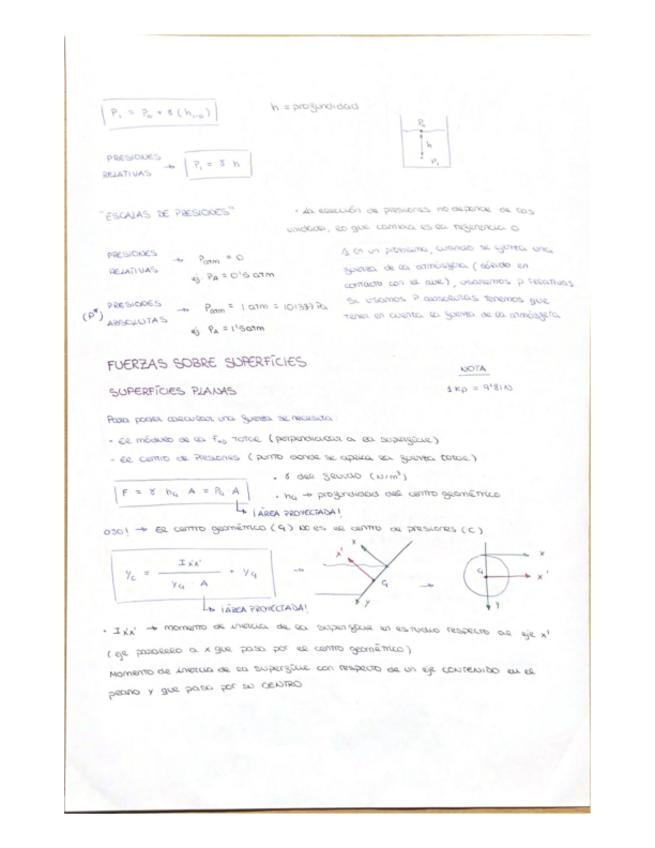 P₁ = P₀ + γ (h₁₋₀)
h = profundidad
P₀
h
P₁
PRESIONES RELATIVAS → P₁ = γ h
"ESCALAS DE PRESIONES"
• La elección de presiones no depende de las
unidades, lo que cambia es la referencia 0
PRESIONES RELATIVAS → Patm = 0
ej. PA = 0'5 atm
PRESIONES ABSOLUTAS (P*) → Patm = 1 atm = Pa
ej. PA = 1'5 atm
en un problema, cuando se ejerza una
fuerza de la atmósfera (sólido en
contacto con el aire), usaremos P relativas
Si usamos P absolutas tenemos que
tener en cuenta la fuerza de la atmósfera
FUERZAS SOBRE SUPERFÍCIES
NOTA
SUPERFÍCIES PLANAS
1 kp = 9'81 N
Para poder calcular una fuerza se necesita:
- El módulo de la TOTAL (perpendicular a la superfície)
- El centro de Presiones (punto donde se aplica la fuerza total)
F = γ hG A = PG A
• γ del fluido (N/m³)
• hG → profundidad del centro geométrico
↳ ¡ÁREA PROYECTADA!
OJO! → El centro geométrico (G) NO es el centro de presiones (C)
yC = Ix'x' / yG · A + yG
→
x
x'
G
y
→
G
x
x'
y
↳ ¡ÁREA PROYECTADA!
• Ix'x' → momento de inercia de la superfície en estudio respecto al eje x'
(eje paralelo a x que pasa por el centro geométrico)
Momento de inercia de la superfície con respecto de un eje CONTENIDO en el
plano y que pasa por su CENTRO